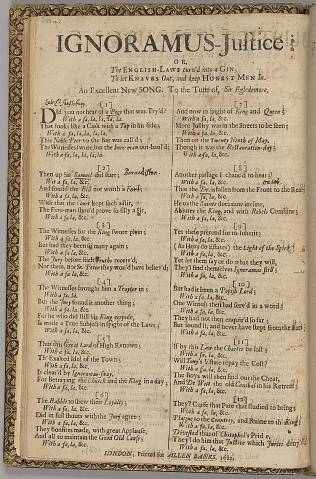 IGNORAMUS-Justice:
OR,
The ENGLISH-LAWS turn'd into a GIN,
To let KNAVES Out, and keep HONEST MEN In.
An Excellent New SONG. To the Tune of, Sir Egledemore.
[1]
Did you not hear of a Peer that was Try'd?
With a fa, la, la, la, la.
That looks like a Cask with a Tap in his side,
With a fa, la, la, la, la.
This Noble Peer to the Bar was call'd
The Witnesses swore, but the Fore-man out-baul'd;
With a fa, la, la, la, la.
[2]
Then up Sir Samuel did start;
With a fa, la, &c.
And found the Bill not worth a Fart;
With a fa, la, &c.
With that the Jury kept such a
The Fore-man should prove so silly a Sir,
With a fa, la, &c.
[3]
The Witnesses for the King swore plain;
With a fa, la, &c.
But had they been as many again;
With a fa, la, &c.
The Jury before such Truths rooted,
Nor them, nor St. Peter they wou'd have believ'd;
With a fa, la, &c.
[4]
The Witnesses brought him a Traytor in
With a fa, la.
But the Jury found it another thing;
With a fa, la, &c.
For he who did still his King oppose,
Is made a True Subject in spight of the Laws;
With a fa, la, &c.
[5]
Thus this Great Lord of High Renown;
With a fa, la, &c.
The Exalted Idol of the Town;
With a fa, la, &c.
Is clear'd by Ignoramus-sway,
For Betraying the Church and the King in a day;
With a fa, la, &c.
[6]
The Rabble to shew their Loyalty;
With a fa, la, &c.
Did in full shouts with the Jury agree;
With a fa, la, &c.
They Bonfires made, with great Applause,
And all to maintain the Good Old Cause;
With a fa, la, &c.
[7]
And now in spight of King and Queen;
With a fa, la, &c.
More Jollity was in the Streets to be seen;
With a fa, la, &c.
Then on the Twenty Ninth of May,
Though it was the Restauration-day;
With a fa, la, &c.
[8]
Another passage I chanc'd to hear;
With a fa, la, &c.
That the is fallen from the Front to the Rear;
With a fa, la, &c.
He to the does now incline,
Abjures the King, and with Rebels Combine;
With a fa, la, &c.
[9]
Yet these pretend for to inherit;
With a fa, la, &c.
(As Beens do Esther) the Light of the Spirit;
With a fa, la, &c.
Yet let them say or do what they will,
They'l find themselves Ignoramus still;
With a fa, la, &c.
[10]
But had it been a Popish Lord;
With a fa, la, &c.
One Witness then had serv'd in a word;
With a fa, la, &c.
They had not then enquir'd so far,
But found it, and never have stept from the Bar;
With a fa, la, &c.
[11]
If by this Law the Charter be lost;
With a fa, la, &c.
Will Tony's Estate repay the Cost?
With a fa, la, &c.
The Boys will then find out the Cheat,
And De Wit the old in his Retreat;
With a fa, la, &c.
[12]
They'l Curse the Pate that studied to bring;
With a fa, la, &c.
Plague to the Country, and Ruine to the King;
With a fa, la, &c.
They'l do him that Justice which Juries deny'd
With a fa, la, &c.
LONDON, Printed for ALLEN BANKS, 1682.